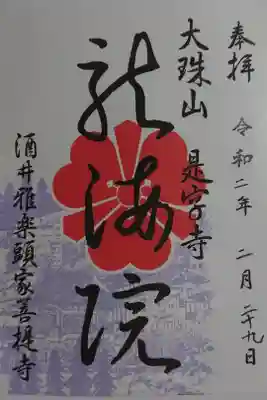 奉拝 令和二年 二月 二十九日
大珠山 是字寺
龍海院
酒井雅楽頭家菩提寺